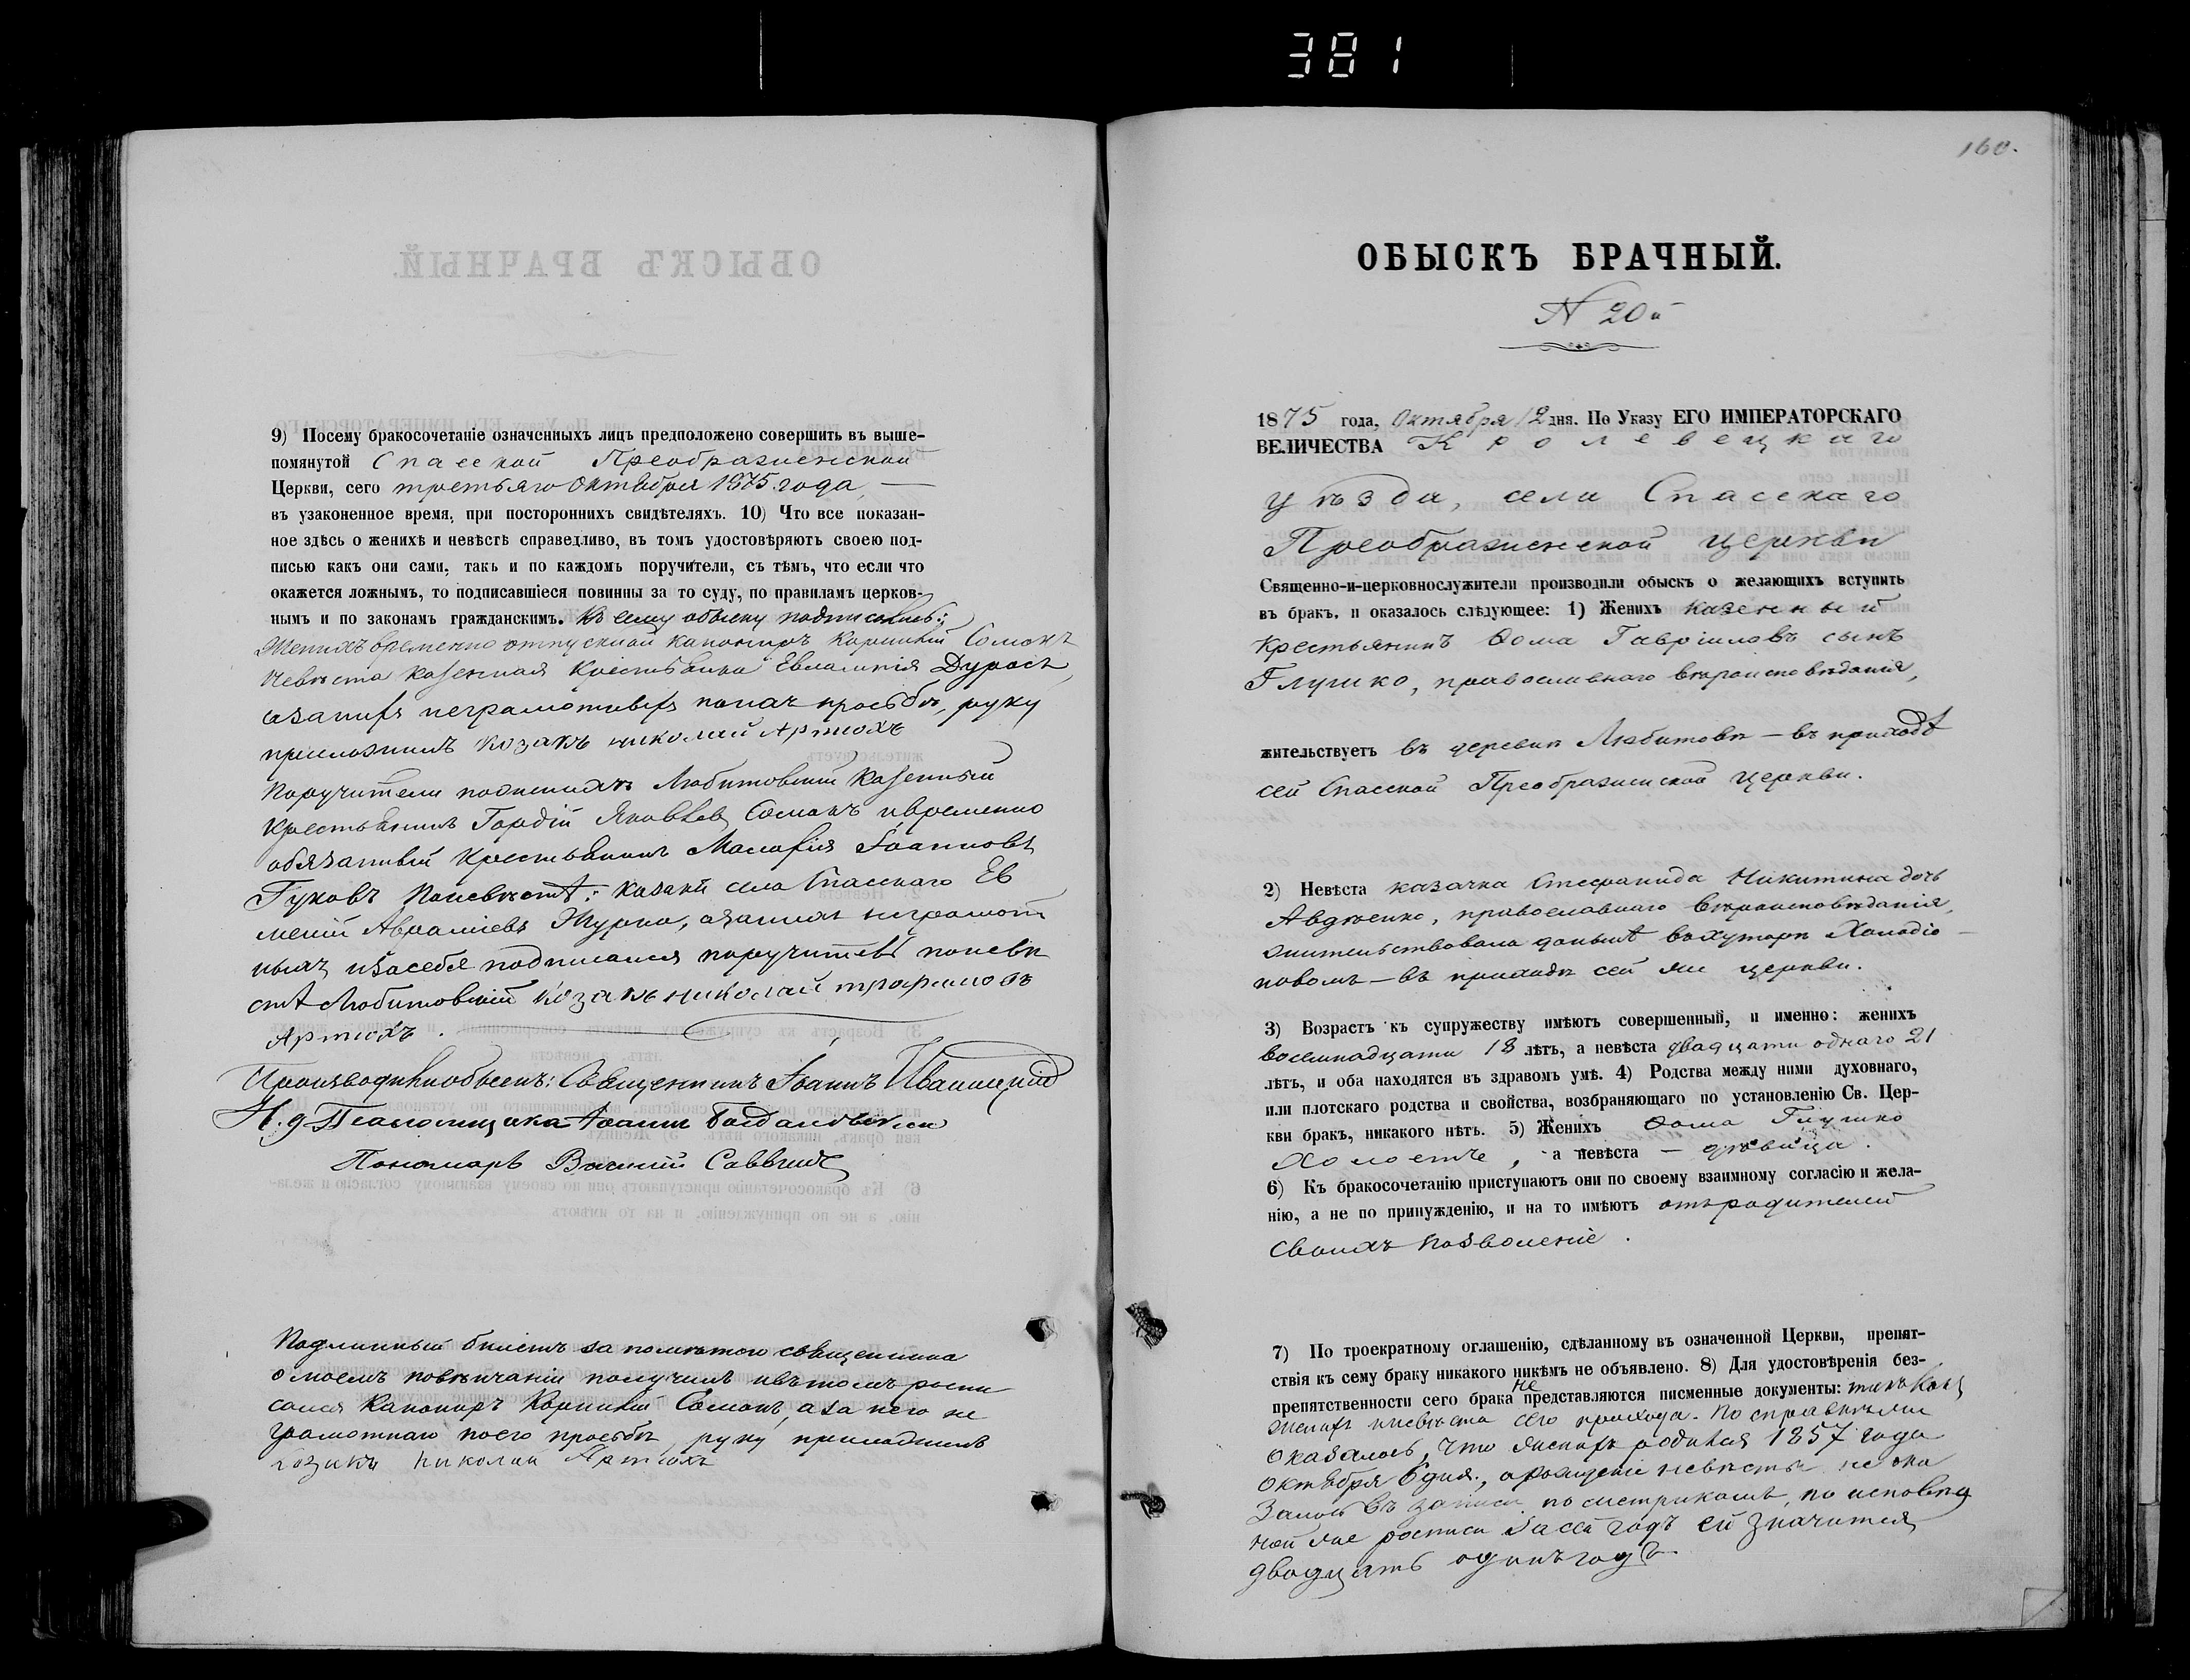 381
160.
9) Посему бракосочетаніе означенныхъ лицъ предположено совершить въ выше-
помянутой Спасской Преображенской
Церкви, сего третьяго Октября 1875 года,
въ узаконенное время, при постороннихъ свидѣтеляхъ. 10) Что все показан-
ное здѣсь о женихѣ и невѣстѣ справедливо, въ томъ удостовѣряютъ своею под-
писью какъ они сами, такъ и по каждомъ поручители, съ тѣмъ, что если что
окажется ложнымъ, то подписавшіеся повинны за то суду, по правиламъ церков-
нымъ и по законамъ гражданскимъ. Къ сему обыску подписались:
Женихъ временно отпускной канониръ Корнилій Сомокъ
Невѣста казенная крестьянка Евлампія
азанихъ неграмотныхъ поихъ просьбѣ, руку
приложилъ козакъ николай Артюхъ
Поручители поженихѣ Любитовскій казенный
крестьянинъ Гордій Яковлевъ Сомокъ ивременно
обязанный крестьянинъ Іоанновъ
Гуковъ Поневѣстѣ: казаки села Спасскаго Ев
меній Авраміевъ Журко, азанихъ неграмот
ныхъ изасебя подписался поручитель поневѣ
стѣ Любитовскій козакъ николай трофимовъ
Артюхъ.
Производили обыскъ: Священникъ Іоаннъ Иваницкій
И. д. Псаломщика Іоаннъ
Пономарь Василій Саввичъ
Подлинный билетъ за помѣтою священника
о моемъ повѣнчаніи получилъ ивътомъ роспи
сался Канониръ Корнилій Сомокъ, а за него не
грамотнаго поего просьбѣ руку приложилъ
козакъ Николай Артюхъ
ОБЫСКЪ БРАЧНЫЙ.
N 20й
1875 года, Октября 12 дня. По Указу ЕГО ИМПЕРАТОРСКАГО
ВЕЛИЧЕСТВА Кролевецкаго
уѣзда, села Спасскаго
Преображенской церкви
Священно-и-церковнослужители производили обыскъ о желающихъ вступить
въ бракъ, и оказалось слѣдующее: 1) Женихъ казенный
крестьянинъ Ѳома Гавріиловъ сынъ
Глушко, православнаго вѣроисповѣданія,
жительствуетъ въ деревнѣ Любитовѣ — въ приходѣ
сей Спасской Преображенской церкви.
2) Невѣста казачка Стефанида Никитина дочь
Авдѣенко, православнаго вѣроисповѣданія,
жительствовала донынѣ въхуторѣ Холодіо-
новомъ — въ приходѣ сей же церкви.
3) Возрастъ къ супружеству имѣютъ совершенный, и именно: женихъ
восемнадцати 18 лѣтъ, а невѣста двадцати одного 21
лѣтъ, и оба находятся въ здравомъ умѣ. 4) Родства между ними духовнаго,
или плотскаго родства и свойства, возбраняющаго по установленію Св. Цер-
кви бракъ, никакого нѣтъ. 5) Женихъ Ѳома Глушко
холостъ, а невѣста — дѣвица.
6) Къ бракосочетанію приступаютъ они по своему взаимному согласію и жела-
нію, а не по принужденію, и на то имѣютъ отъродителей
своихъ позволеніе.
7) По троекратному оглашенію, сдѣланному въ означенной Церкви, препят-
ствія къ сему браку никакого никѣмъ не объявлено. 8) Для удостовѣренія без-
препятственности сего брака не представляются писменные документы: такъ какъ
женихъ иневѣста сего прихода. По справкѣ же
оказалось, что женихъ родился 1857 года
октября 6 дня, арожденіе невѣсты не ока
залось въ записи по метрикамъ, по исповѣд
ной же росписи засей годъ ей значится
двадцать одинъ годъ.